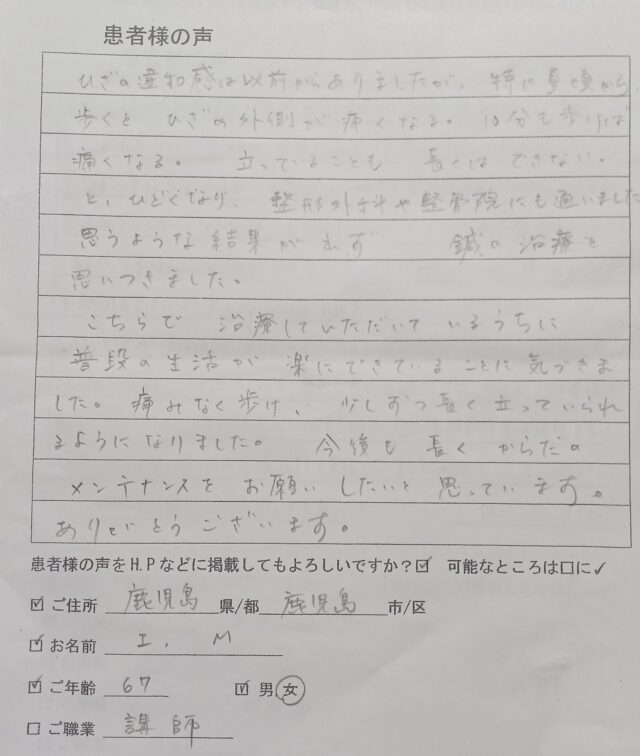 患者様の声
ひざの違和感は以前からありましたが、特に夏頃から、
歩くと ひざの外側が 痛くなる。10分も歩けば
痛くなる。 立っていることも 長くは できない。
と、ひどくなり、整形外科や整骨院にも通いました
思うような結果が 鍼の治療を
思いつきました。
こちらで 治療していただいて いるうちに
普段の生活が 楽にできている ことに気づきま
した。痛みなく歩け、少しずつ長く立っていられ
るようになりました。 今後も 長く からだの
メンテナンスを お願い したいと 思っています。
ありがとうございます。
患者様の声をH.Pなどに掲載してもよろしいですか?☑ 可能なところは□に✓
☑ご住所 鹿児島 県/都 鹿児島 市/区
☑お名前 I. M
☑ご年齢 67 ☑男・女
□ご職業 講師